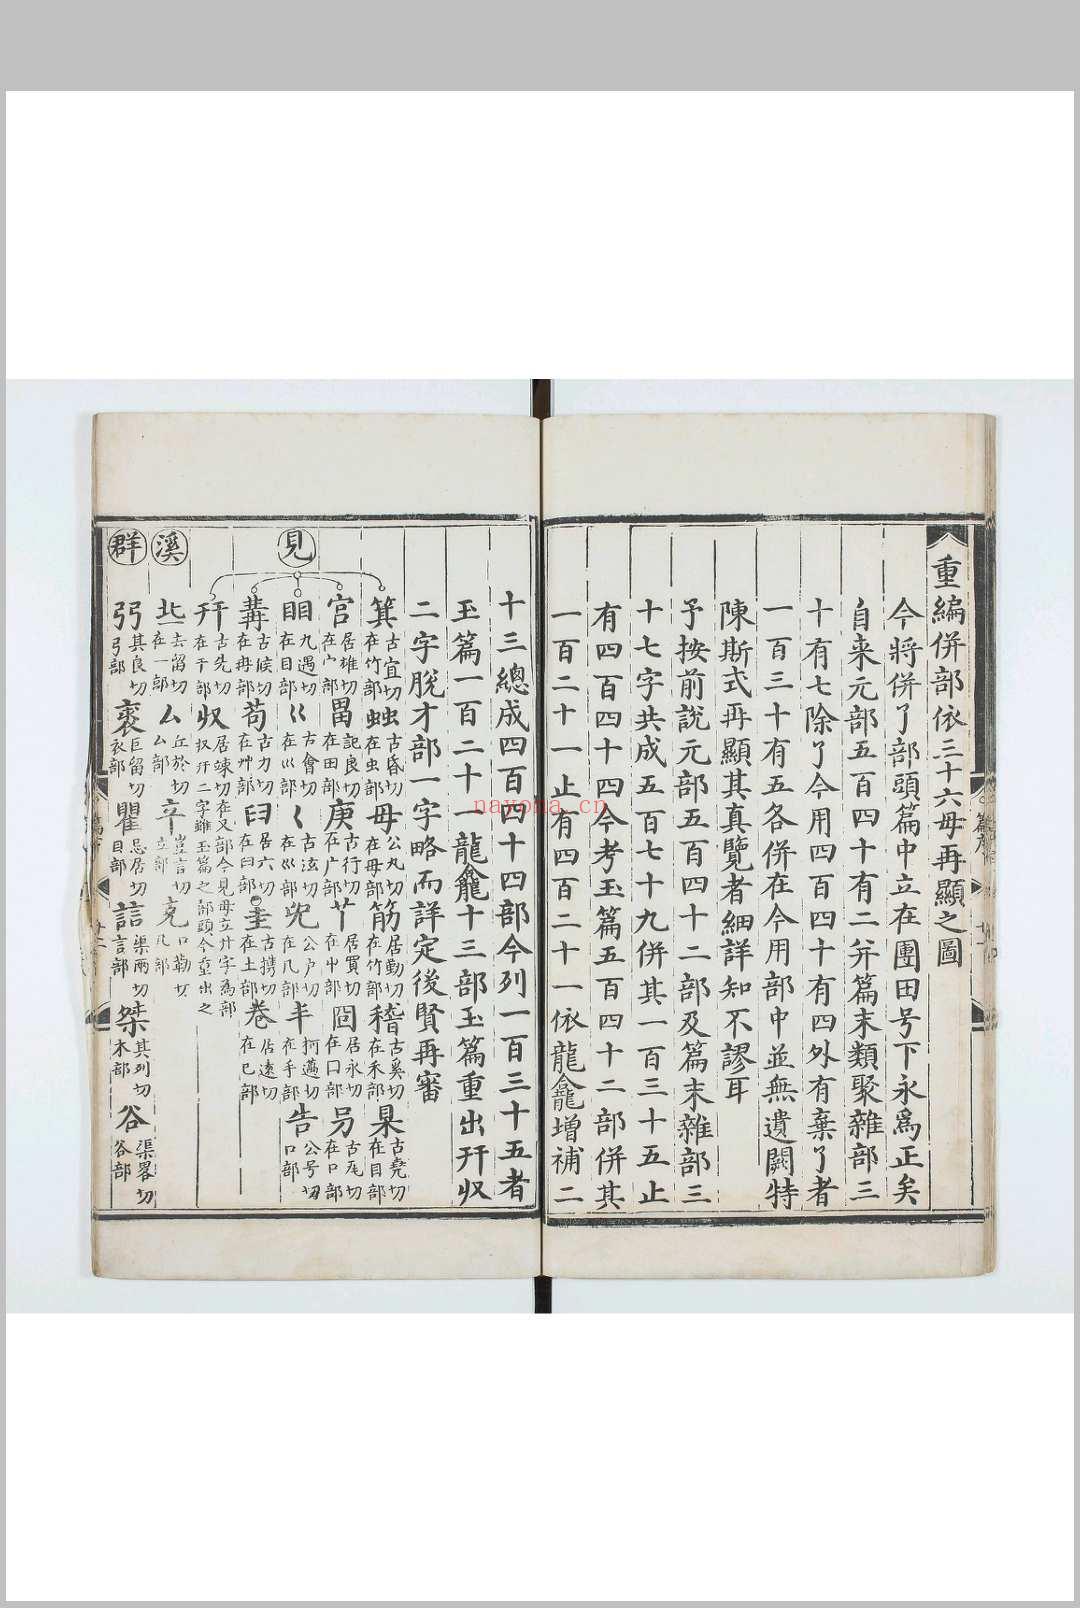 重編併部依三十六母再顯之圖
今將併了部頭篇中立在團田号下永爲正矣
自来元部五百四十有二并篇末類聚雜部三
十有七除了今用四百四十有四外有棄了者
一百三十有五各併在今用部中並無遺闕特
陳斯式再顯其真覽者細詳知不謬耳
予按前說元部五百四十二部及篇末雜部三
十七字共成五百七十九併其一百三十五止
有四百四十四今考玉篇五百四十二部併其
一百二十一止有四百二十一依龍龕增補二
十三總成四百四十四部今列一百三十五者
玉篇一百二十一龍龕十三部玉篇重出幵収
二字脫才部一字略而詳定後賢再審
見
箕 古宜切在竹部 䖵 古昏切在虫部 毋 公丸切在毋部 筋 居勤切在竹部 稽 古奚切在禾部 杲 古堯切在目部
宮 居雄切在宀部 畕 記良切在田部 庚 古行切在广部 𦫳 居買切在屮部 囧 居永切在口部 另 古瓦切在口部
䀠 九遇切在目部 巜 古會切在巛部 𡿨 古泫切在巛部 兜 公户切在几部 丯 柯邁切在手部 告 公号切口部
冓 古候切在冉部 苟 古力切在艸部 臼 居六切在曰部 圭 古携切在土部 卷 居遠切在巳部
幵 古先切在干部 収 居竦切在又部今見母立廾字爲部収幵二字雖玉篇之部頭今重出之
溪
北 去留切在一部 厶 丘於切厶部 䇂 豈言切立部 克 口勒切几部
群
弜 其良切弓部 裘 巨留切衣部 瞿 忌居切目部 誩 渠兩切言部 桀 其列切木部 谷 渠畧切谷部
篇序
nayona.cn